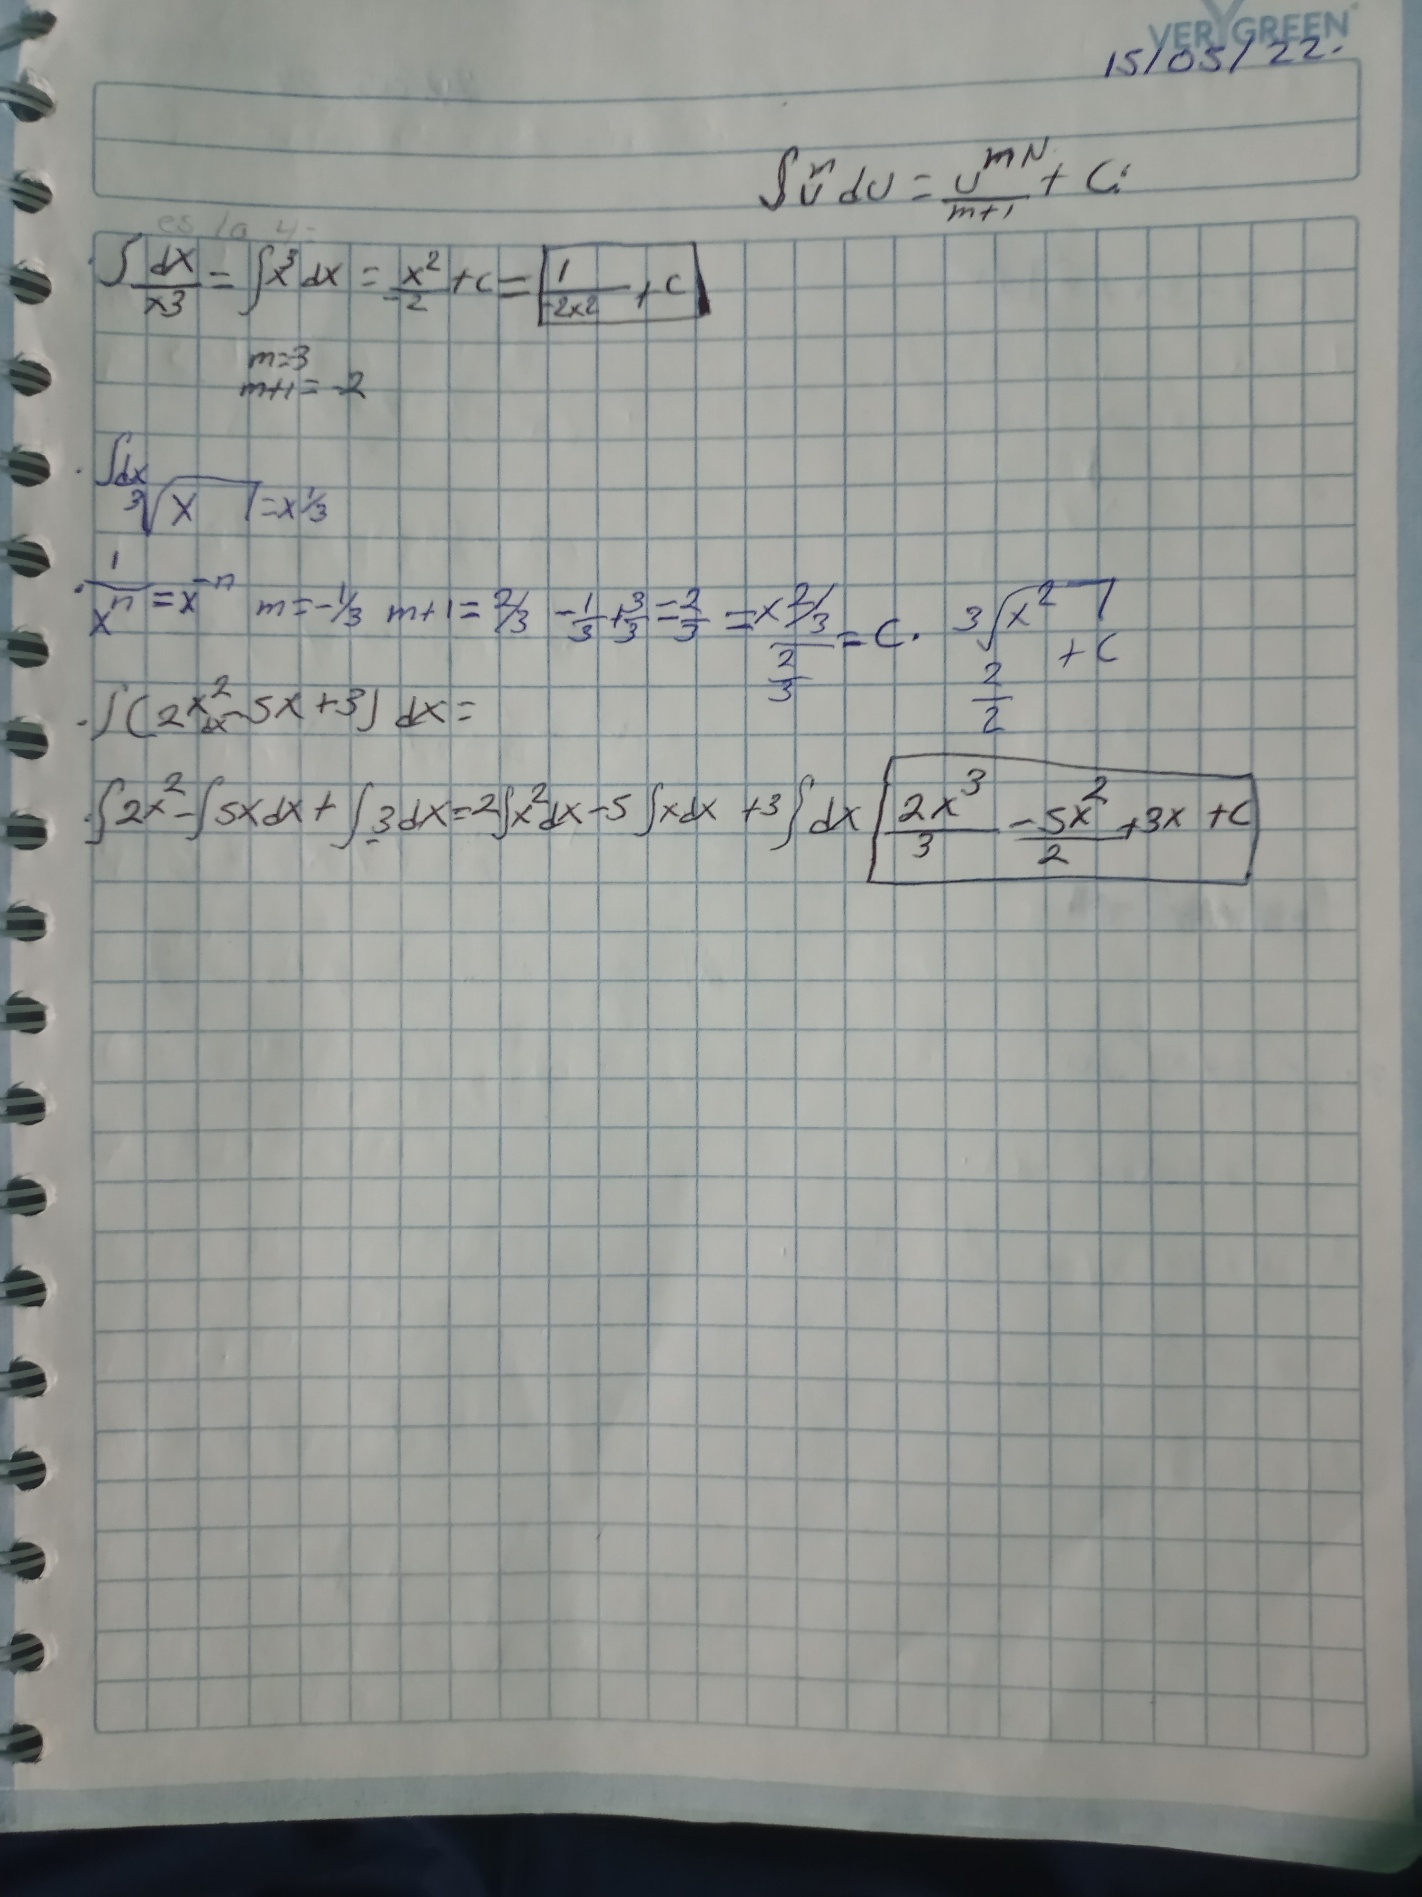 VERYGREEN
15/05/22.
∫u^m du = u^mN/m+1 + C.
es la 4:
∫dx/x3 = ∫x^3 dx = x^2/-2 + c = 1/-2x2 + c
m=3
m+1=-2
∫dx/3√x = x 1/3
1/x^n = x^-n m=-1/3 m+1=2/3 -1/3+3/3=2/3 = x 2/3 / 2/3 = C. 3√x^2 / 2/2 + C
∫(2x^2 dx -5x+3) dx=
∫2x^2-∫5xdx+∫3dx=2∫x^2dx-5∫xdx +3∫dx 2x^3/3 -5x^2/2 +3x +C